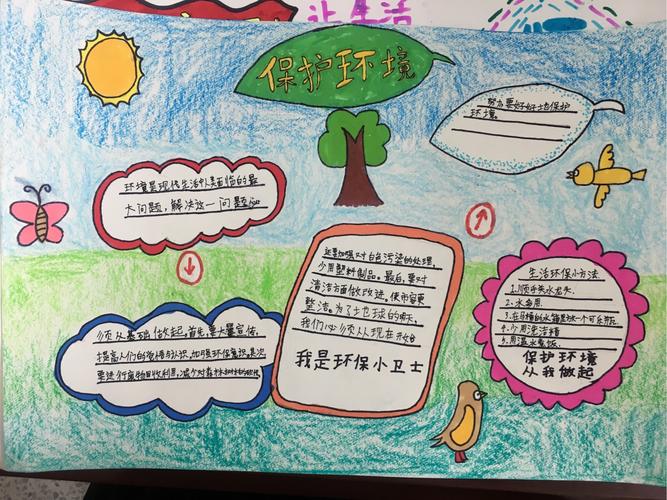 让生活
保护环境
努力要好好地保护
环境。
环境是现代生活中人类面临的最
大问题，解决这一问题必
须从基础做起，首先，要大量宣传，
提高人们的
要进行废物回收利用，减少对森林
还要加强对白色污染的处理，
少用塑料制品。最后，要对
清洁方面做改进。使市容更
整洁。为了地球的明天，
我们必须从现在开始
我是环保小卫士
生活环保小方法
1.顺手关水龙头.
2.水多用.
3.在马桶的水箱里放一个可乐瓶.
4.少用洗洁精
5.用温水煮饭.
保护环境
从我做起